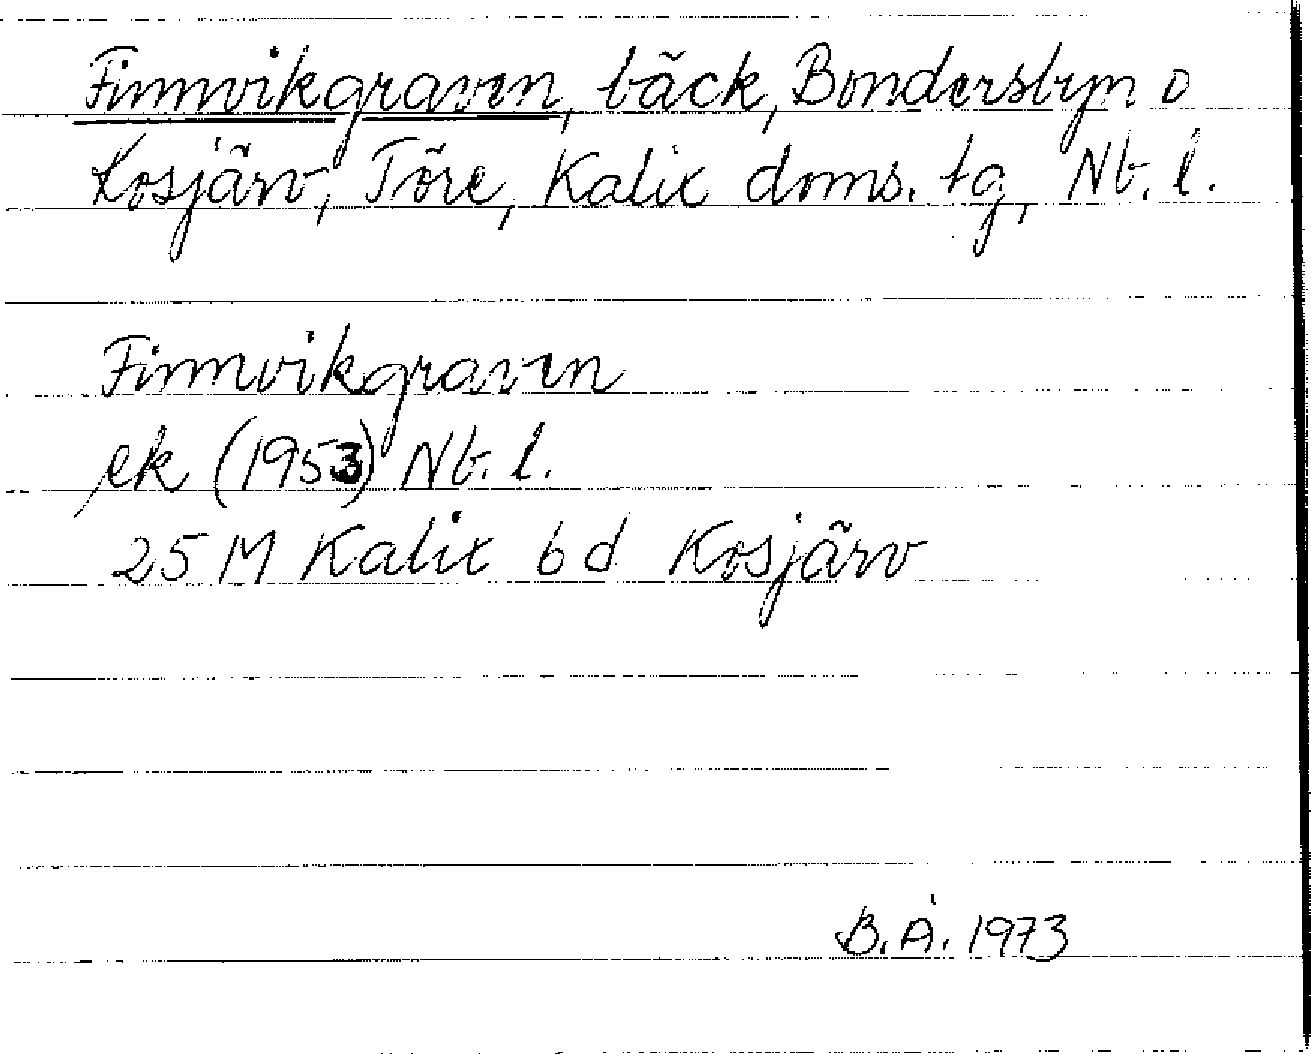 Finnvikgraven, bäck, Bondersbyn o
Kosjärv, Töre, Kalix doms. tg, Nb. l.
Finnvikgraven
ek (1953) Nb. l.
25 M Kalix 6 d Kosjärv
B.Å. 1973